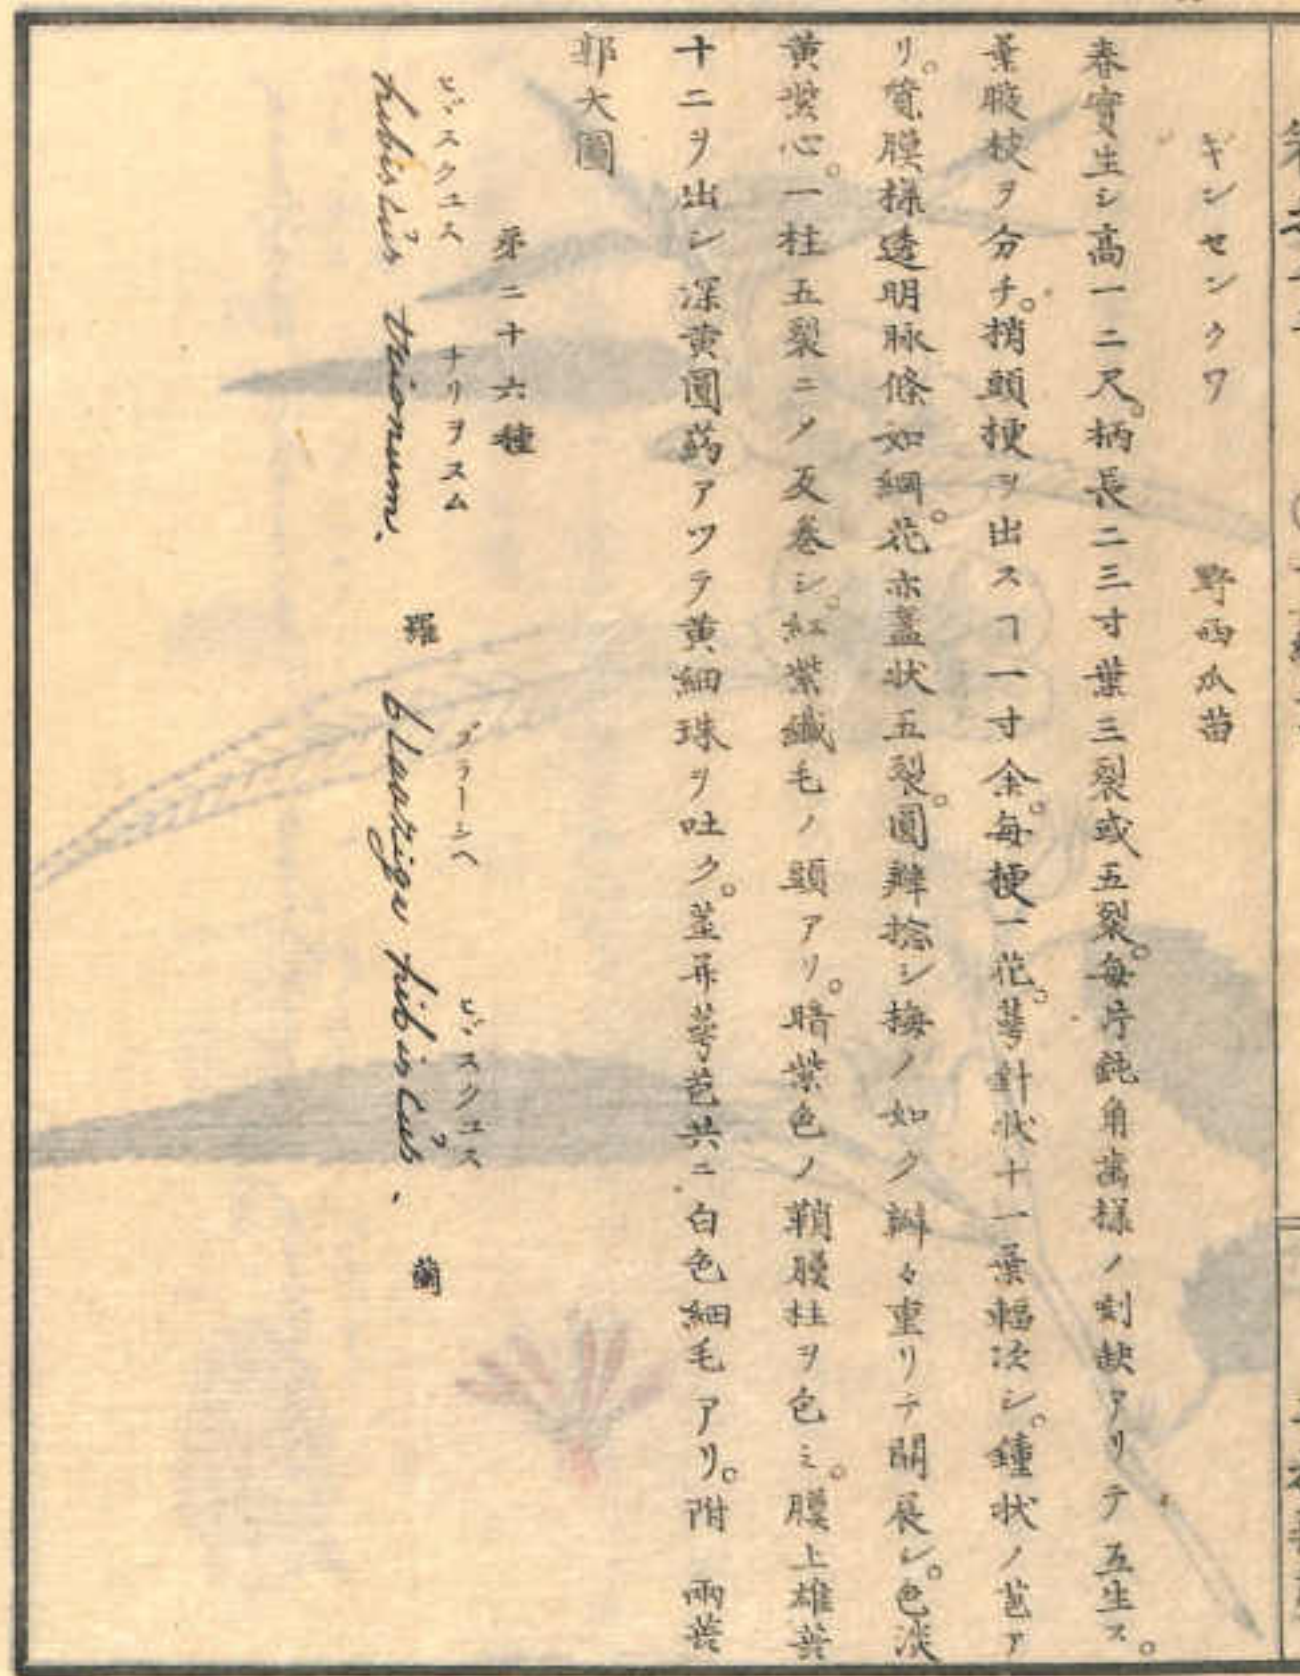 ギンセンクワ 野西瓜苗
春實生シ高一二尺。柄長二三寸葉三裂或五裂。每片鈍角萵樣ノ刻缺アリテ互生ス。
葉腋枝ヲ分チ。梢頭梗ヲ出スヿ一寸余。每梗一花。萼針狀十一葉輻次シ。鐘状ノ苞ア
リ。質膜樣透明脉條如綱。花亦盖状五裂。圓瓣捻シ梅ノ如ク瓣々重リテ開展シ。色淡
黄紫心。一柱五裂ニ乄反卷シ。紅紫纎毛ノ頭アリ。暗紫色ノ鞘膜柱ヲ包ミ。膜上雄蘂
十二ヲ出シ深黄圓葯アツテ黄細珠ヲ吐ク。莖并萼苞共ニ白色細毛アリ。附 兩蘂
郭大圖
第二十六種
ヒビスクユス ナリヲスム
hibiscus trionum. 羅
ブラーシヘ ヒビスクユス
blaazige hibiscus. 蘭